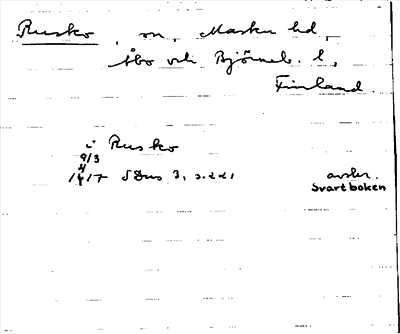 Rusko, sn, Masku hd,
Åbo och Björneb. l,
Finland.
i Rusko
9/3
4
1417 SDns 3, s. 221 avskr.
Svartboken